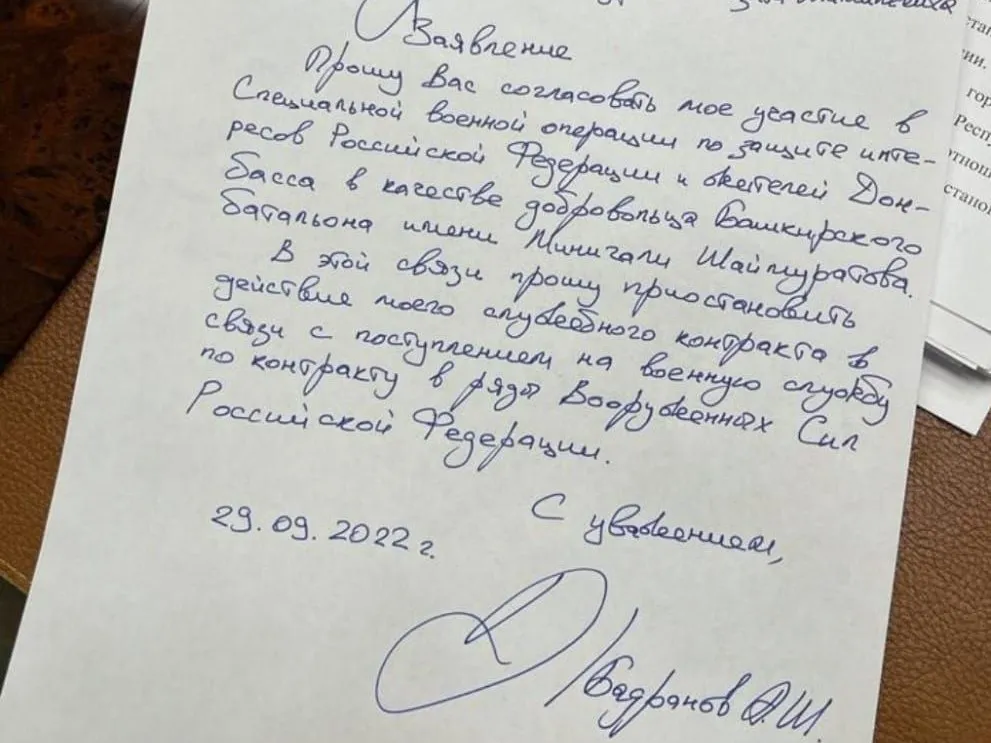 Заявление
Прошу Вас согласовать мое участие в
Специальной военной операции по защите инте-
ресов Российской Федерации и жителей Дон-
басса в качестве добровольца Башкирского
батальона имени Минигали Шаймуратова.
В этой связи прошу приостановить
действие моего служебного контракта в
связи с поступлением на военную службу
по контракту в ряды Вооруженных Сил
Российской Федерации.
29.09.2022 г.
С уважением,
/Бадранов А.Ш.
гор
Респ
тнош
станов